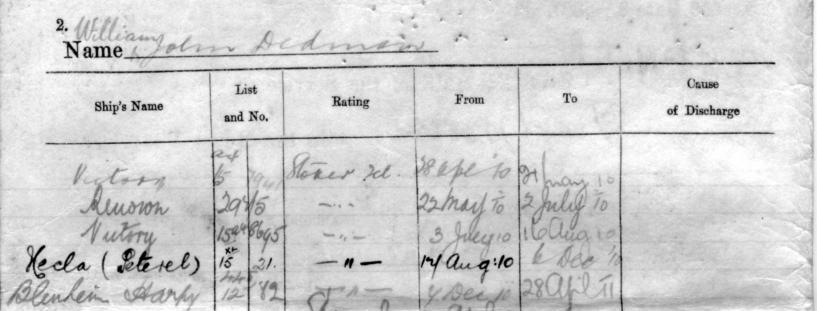 2. William
Name John Dedman
Ship's Name List and No. Rating From To Cause of Discharge
Victory 15 Stoker 2cl. 28 Apl '10 21 May 10
Renown 29 15 -"- 22 May 10 2 July 10
Victory 15 8695 -"- 3 July 10 16 Aug 10
Hecla (Peterel) 15 21. -"- 17 Aug: 10 6 Dec '10
Blenheim Harpy 12 82 -"- 7 Dec 10 28 Apl 11